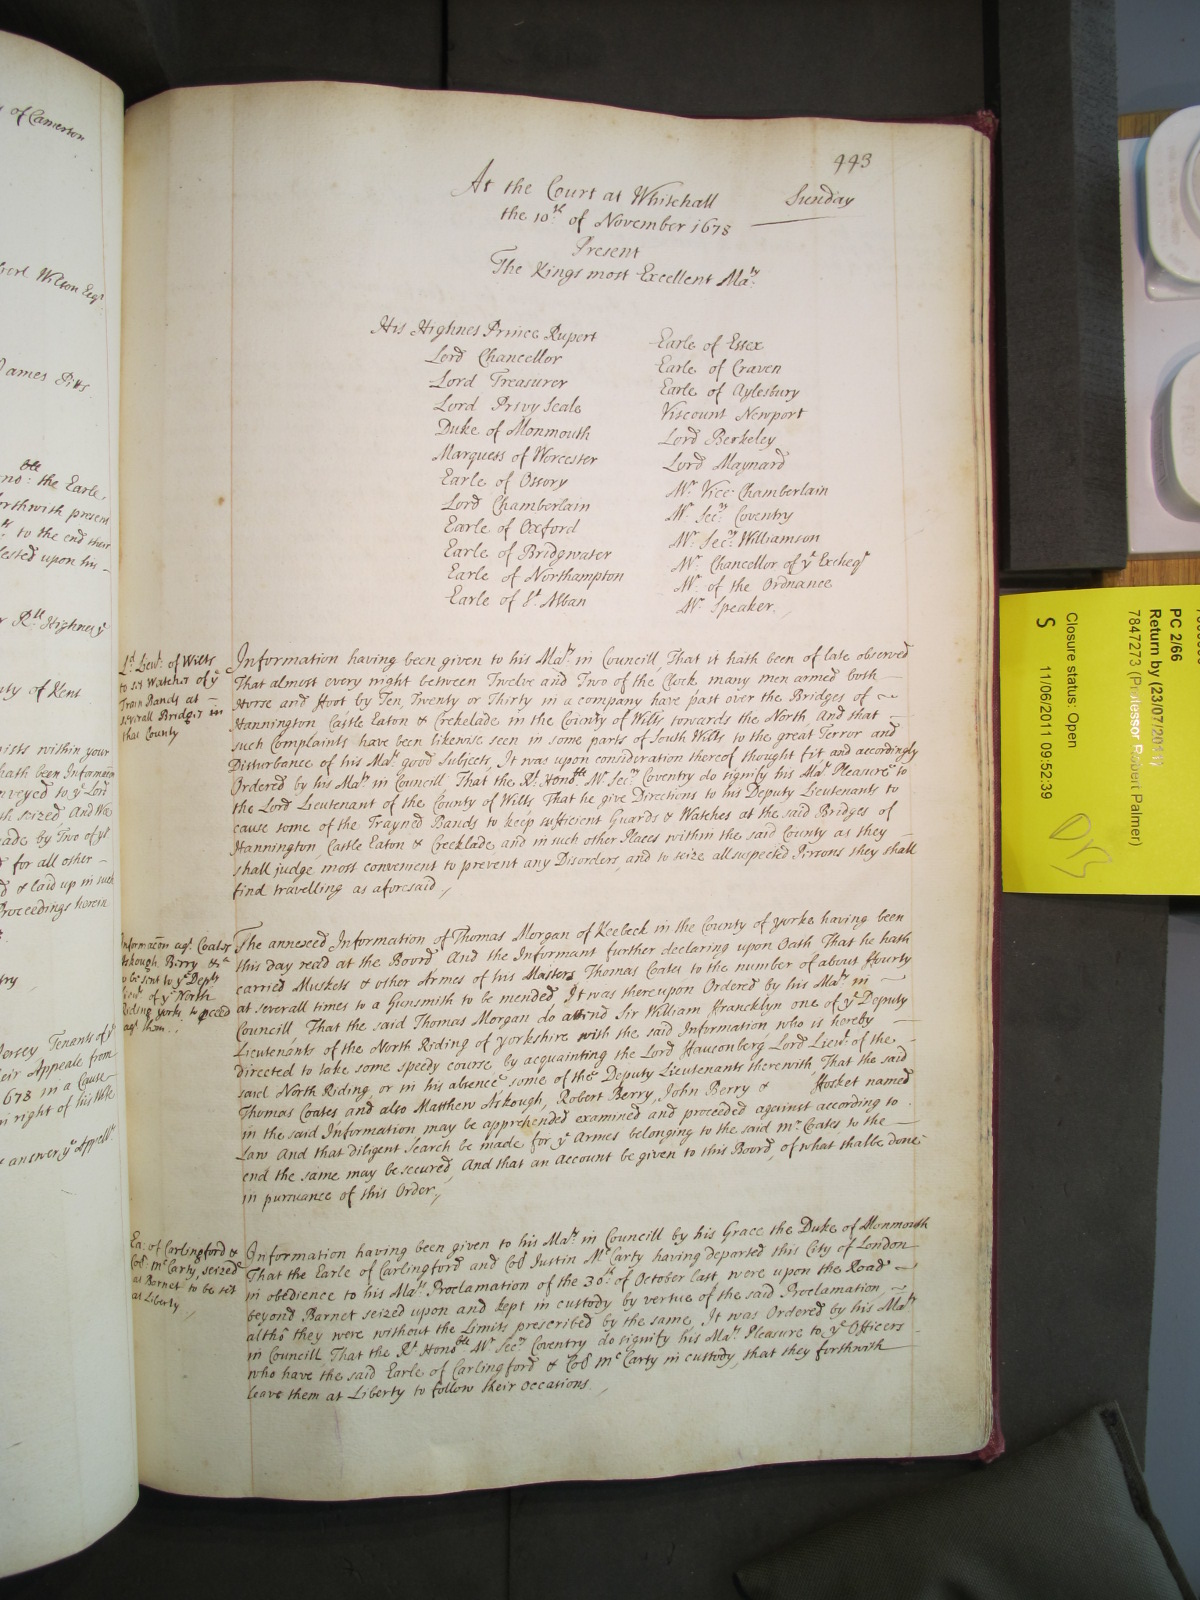 443
At the Court at Whitehall Sunday
the 10th of November 1678
Present
The Kings most Excellent Maty
His Highnes Prince Rupert
Lord Chancellor
Lord Treasurer
Lord Privy Seale
Duke of Monmouth
Marquess of Worcester
Earle of Ossory
Lord Chamberlain
Earle of Oxford
Earle of Bridgwater
Earle of Northampton
Earle of St Alban
Earle of Essex
Earle of Craven
Earle of Aylesbury
Viscount Newport
Lord Berkeley
Lord Maynard
Mr Vice Chamberlain
Mr Secry Coventry
Mr Secry Williamson
Mr Chancellor of ye Excheqr
Mr of the Ordnance
Mr Speaker.
Ld Lieut of Wilts
to set Watches of ye
Train Bands at
severall Bridges in
that County
Information having been given to his Maty in Councill, That it hath been of late observed
That almost every night between Twelve and Two of the Clock many men armed both
Horse and Foot by Ten, Twenty or Thirty in a company have past over the Bridges of
Hannington Castle Eaton & Crekelade in the County of Wilts towards the North, And that
such Complaints have been likewise seen in some parts of South Wilts to the great Terror and
Disturbance of his Mats good Subjects, It was upon consideration thereof thought fit, and accordingly
Ordered by his Maty in Councill That the Rt Honoble Mr Secry Coventry do signify his Mats Pleasure to
the Lord Lieutenant of the County of Wilts That he give Directions to his Deputy Lieutenants to
cause some of the Trayned Bands to keep sufficient Guards & Watches at the said Bridges of
Hannington, Castle Eaton & Crecklade and in such other Places within the said County as they
shall judge most convenient to prevent any Disorders, and to seize all suspected Persons they shall
find travelling as aforesaid,
Informacon agt Coates
Askough, Berry &c
to be sent to ye Depty
Lieuts of ye North
Riding yorks to pceed
agt them..
The annexed Information of Thomas Morgan of Keebeck in the County of yorke having been
this day read at the Board And the Informant further declaring upon Oath That he hath
carried Muskets & other Armes of his Masters Thomas Coates to the number of about Fourty
at severall times to a Gunsmith to be mended It was thereupon Ordered by his Maty in
Councill That the said Thomas Morgan do attend Sir William Francklyn one of ye Deputy
Lieutenants of the North Riding of yorkshire with the said Information who is hereby
directed to take some speedy course by acquainting the Lord Fauconberg Lord Lieut of the
said North Riding or in his absence some of the Deputy Lieutenants therewith, That the said
Thomas Coates and also Matthew Askough, Robert Berry, John Berry & Hosket named
in the said Information may be apprehended examined and proceeded against according to
Law And that diligent Search be made for ye Armes belonging to the said mr Coates to the
end the same may be secured, And that an Account be given to this Board, of what shalbe done
in pursuance of this Order,
Ea: of Carlingford &
Coll mcCarty, seized
at Barnet to be set
at Liberty
Information having been given to his Maty in Councill by his Grace the Duke of Monmouth
That the Earle of Carlingford and Coll Justin McCarty having departed this City of London
in obedience to his Mats Proclamation of the 30th of October last, were upon the Road
beyond Barnet seized upon and kept in custody by vertue of the said Proclamation,
altho they were without the Limits prescribed by the same, It was Ordered by his Maty
in Councill That the Rt Honoble Mr Secry Coventry do signify his Mats Pleasure to ye Officers
who have the said Earle of Carlingford & Coll mcCarty in custody, that they forthwith
leave them at Liberty to follow their occasions.
of Camerton
Wilson Esqr
James Pitts
ble
: the Earle
forthwith present
to the end their
upon his
Rll Highnes
of Kent
within your
hath been Informacon
seized And
made by Two of ye
for all other
& laid up in such
Proceedings herein
Jersey Tenants of
their Appeale from
1678 in a Cause
in right of his Wife
answer ye Appellt
PC 2/66
Return by (23/07/2011)
7847273 (Professor Robert Palmer)
Closure status: Open
S 11/06/2011 09:52:39